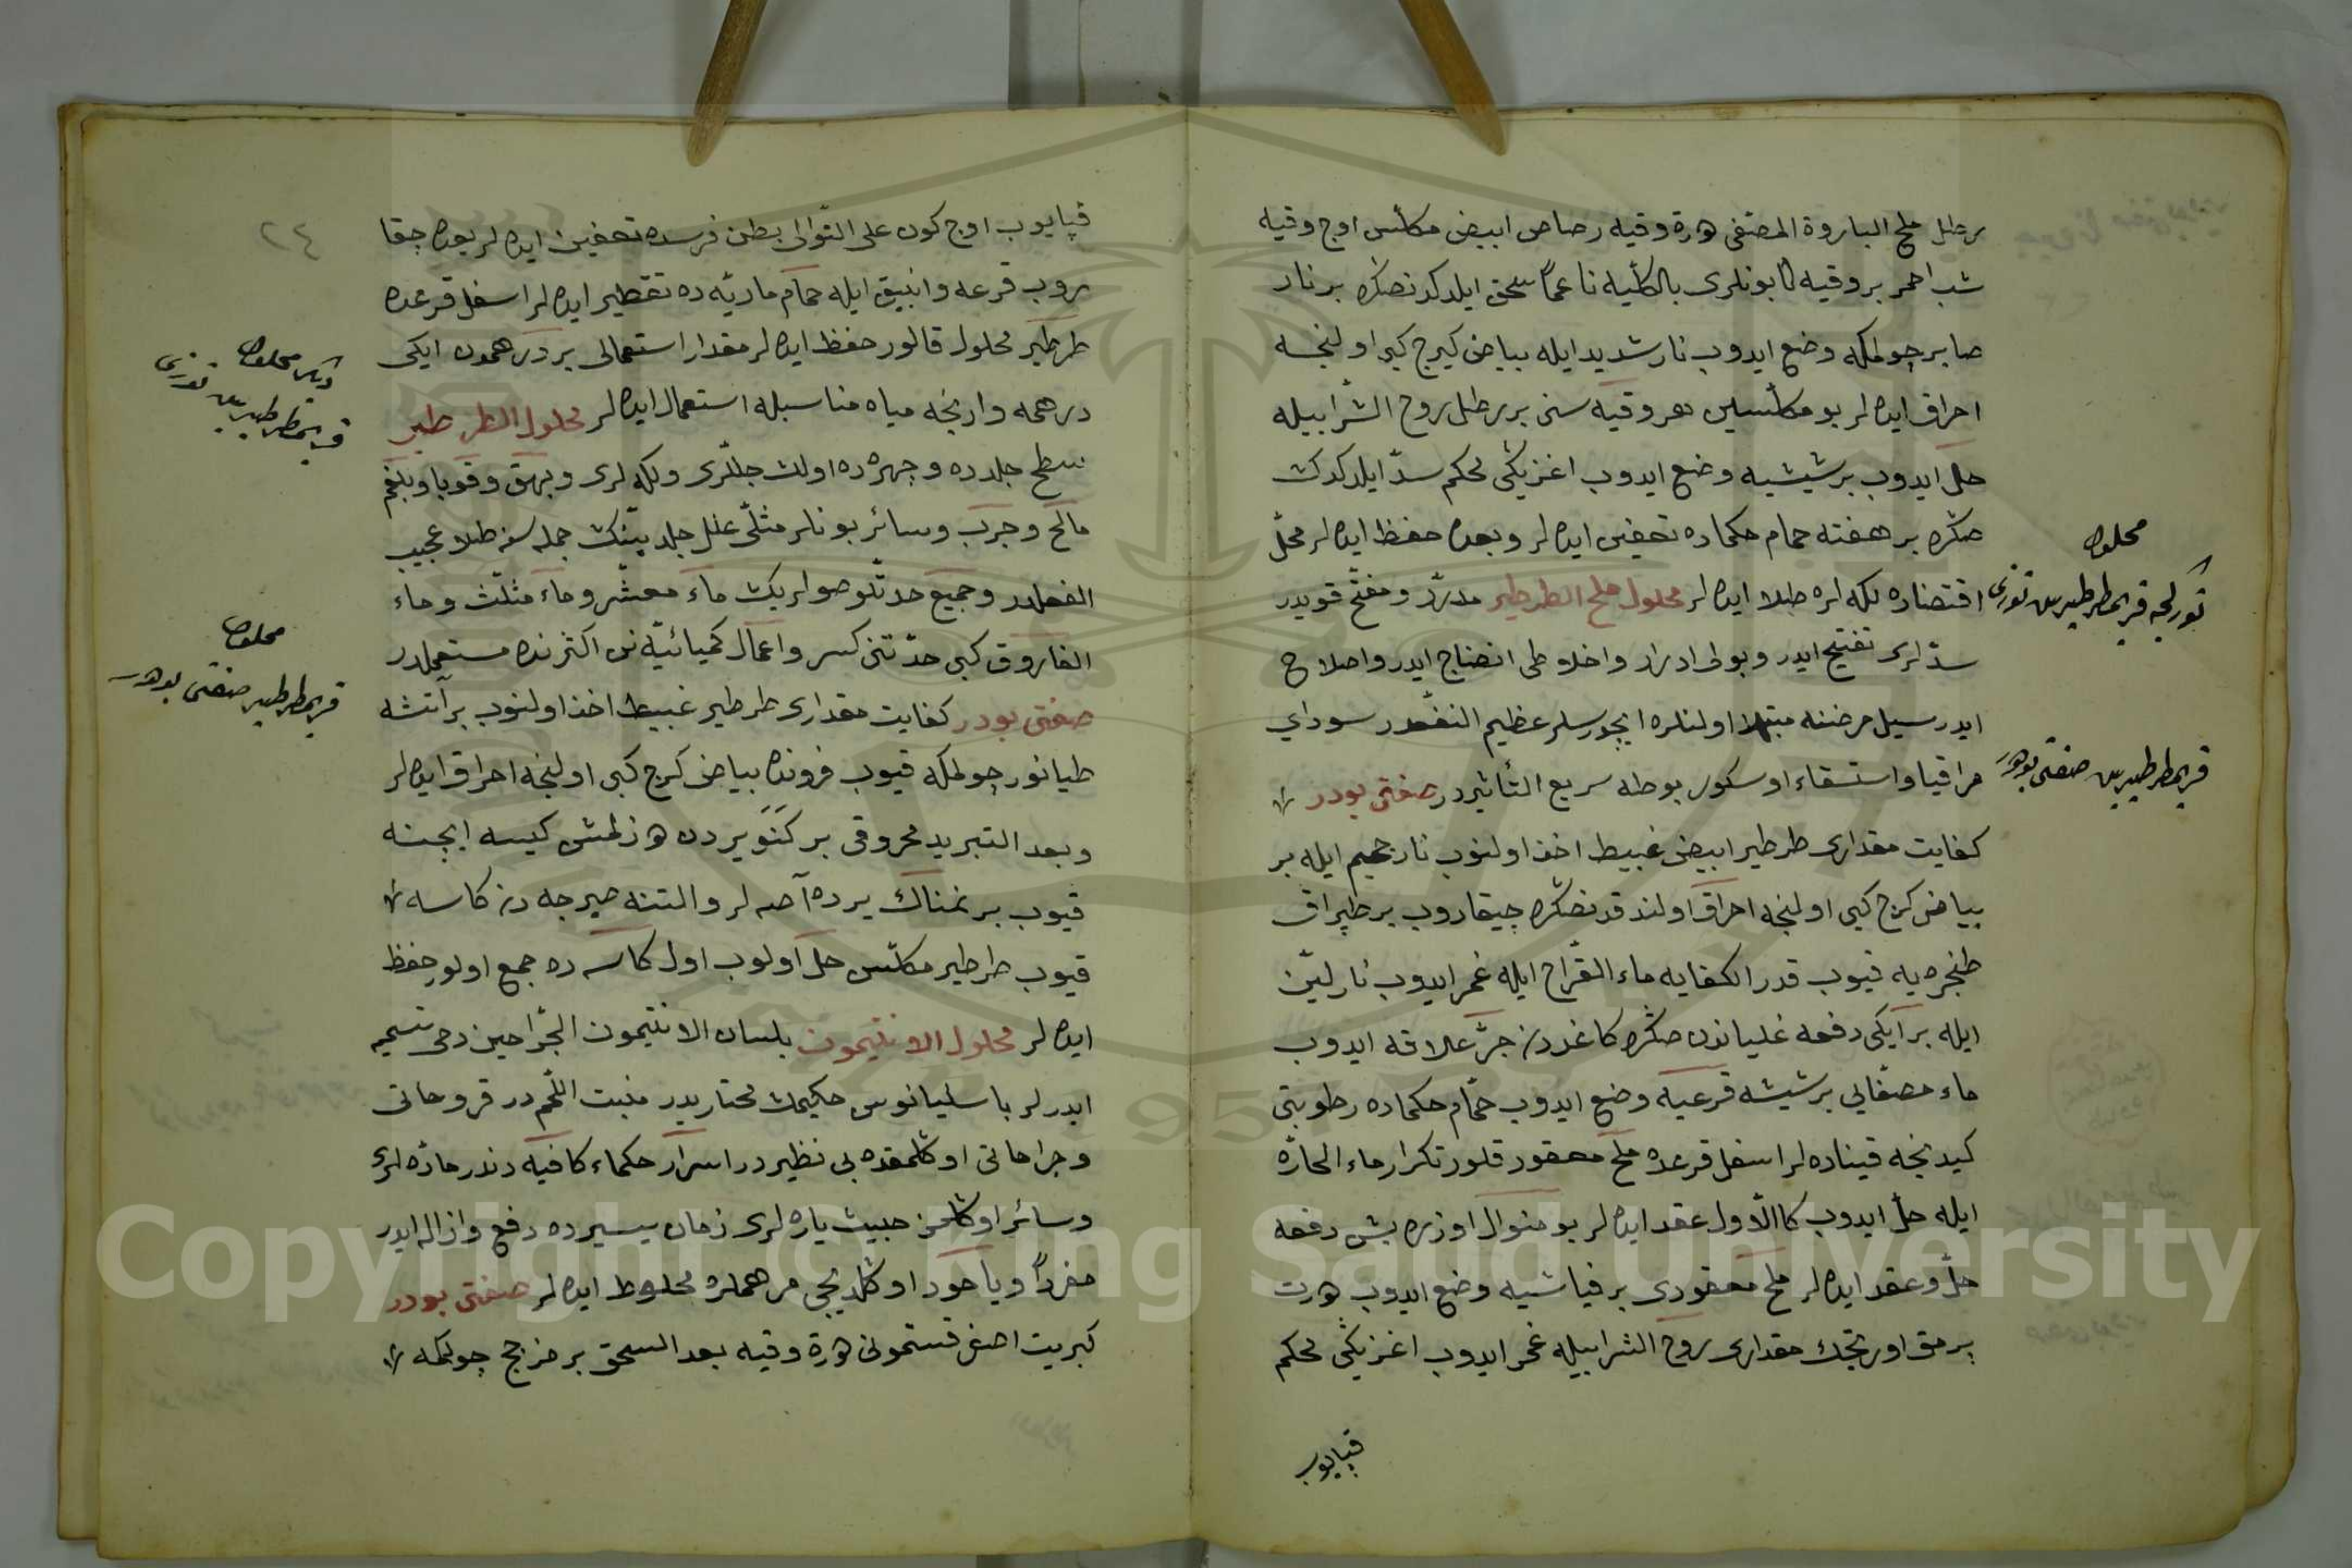 بر رطل ملح البارودة المصفى هر وقيه رصاص ابيض مكلس اوج وقيه
شب احمر بر وقيه بونلرى بالكليه ناعما سحق ايلدكدنصكره بر نار
صابر چولمكه وضع ايدوب نار شديد ايله بياض كيرج كبى اولنجه
احراق ايده لر بو مكلسين هر وقيه سنى بر رطل روح الشراب ايله
حل ايدوب بر شيشيه وضع ايدوب اغزينى محكم سد ايلدكدن
صكره بر هفته حمام حكماده تعفين ايده لر وبعده حفظ ايده لر محل
اقتضاده لكه لره طلا ايده لر محلول ملح الطرطير مدرر ومفتح قويدر
سدلرى تفتيح ايدر وبولى ادرار واخلاطى انضاج ايدر واصلاح
ايدر سيل مرضنه مبتلا اولنلره ايچورسلر عظيم النفعدر سوداى
مراقيا واستسقاء اوسكوربوطه سريع التأثيردر صنعتى بودر
كفايت مقدارى طرطير ابيض غبيط اخذ اولنوب نار جحيم ايله بر
بياض كرج كبى اولنجه احراق اولندقدنصكره چيقاروب بر طپراق
طنجره يه قيوب قدر الكفايه ماء القراح ايله غمر ايدوب نار لين
ايله بر ايكى دفعه غلياندن صكره كاغددن جر علاقه ايدوب
ماء مصفايى بر شيشه قرعيه وضع ايدوب حمام حكماده رطوبتى
كيدنجه قيناده لر اسفل قرعده ملح معقود قلور تكرار ماء الحاره
ايله حل ايدوب كالاول عقد ايده لر بو منوال اوزره بش دفعه
حل وعقد ايده لر ملح معقودى بر فياشيه وضع ايدوب درت
پرمق اورتجك مقدارى روح الشراب ايله غمر ايدوب اغزينى محكم
قپايوب
محلول
قريمطرطيرين صنعتى بودر
٢٤
قپايوب اوچ كون على التوالى بطن فرسده تعفين ايده لر بعده چقا
روب قرعه وانبيق ايله حمام ماريه ده تقطير ايده لر اسفل قرعده
طرطير محلول قالور حفظ ايده لر مقدار استعمالى بر درهمدن ايكى
درهمه وارنجه مياه مناسبله استعمال ايده لر محلول الطرطير
سطح جلدده وچهره ده اولان چللرى ولكه لرى وبهق وقوبا وبلغم
مالح وجرب وسائر بونلر مثللى علل جلديه نك جمله سنه طلا عجيب
الفعلدر وجميع حدتلو صولريك ماء معشر وماء مثلث وماء
الفاروق كبى حدتنى كسر واعمال كميائيه نن اكثرنده مستعملدر
صنعتى بودر كفايت مقدارى طرطير غبيط اخذ اولنوب بر آتشه
طيانور چولمكه قيوب فرونده بياض كرج كبى اولنجه احراق ايده لر
وبعد التبريد محروقى بر كتويردن دوزلمش كيسه ايچنه
قيوب بر نمناك يرده آصه لر والتنه صيرجه دن كاسه
قيوب طرطير مكلس حل اولوب اول كاسه ده جمع اولور حفظ
ايده لر محلول الانتيمون بلسان الانتيمون الجراحين دخى تسميه
ايدرلر باسليانوس حكيمك مختاريدر منبت اللحمدر قروحاتى
وجراحاتى اوكلمقده بى نظيردر اسرار حكماء كافيه دندر ماده لرى
وسائر اوكلمز خبيث ياره لرى زمان يسيرده دفع وازاله ايدر
مفردا وياخود اوكلديجى مرهملره مخلوط ايده لر صنعتى بودر
كبريت اصفر قستمونى درت وقيه بعد السحق بر مزجج چولمكه
ديكر محلول
محلول
قريمطرطير صنعتى بودر
Copyright © King Saud University